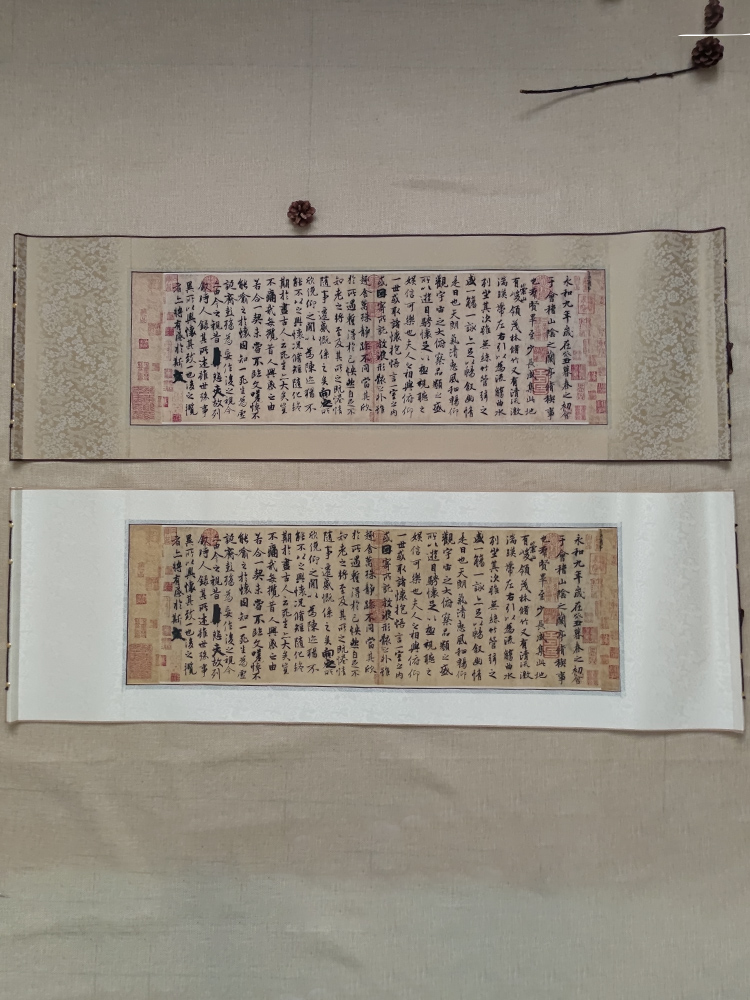 永和九年歲在癸丑暮春之初會
于會稽山陰之蘭亭脩禊事
也羣賢畢至少長咸集此地
有崇山峻領茂林脩竹又有清流激
湍暎帶左右引以為流觴曲水
列坐其次雖無絲竹管弦之
盛一觴一詠亦足以暢敘幽情
是日也天朗氣清惠風和暢仰
觀宇宙之大俯察品類之盛
所以遊目騁懷足以極視聽之
娛信可樂也夫人之相與俯仰
一世或取諸懷抱悟言一室之內
或因寄所託放浪形骸之外雖
趣舍萬殊靜躁不同當其欣
於所遇暫得於己怏然自足不
知老之將至及其所之既惓情
隨事遷感慨係之矣向之所
欣俛仰之閒以為陳迹猶不
能不以之興懷況脩短隨化終
期於盡古人云死生亦大矣豈
不痛哉每攬昔人興感之由
若合一契未嘗不臨文嗟悼不
能喻之於懷固知一死生為虛
誕齊彭殤為妄作後之視今
亦由今之視昔悲夫故列
敘時人錄其所述雖世殊事
異所以興懷其致一也後之攬
者亦將有感於斯文
永和九年歲在癸丑暮春之初會
于會稽山陰之蘭亭脩禊事
也羣賢畢至少長咸集此地
有崇山峻領茂林脩竹又有清流激
湍暎帶左右引以為流觴曲水
列坐其次雖無絲竹管弦之
盛一觴一詠亦足以暢敘幽情
是日也天朗氣清惠風和暢仰
觀宇宙之大俯察品類之盛
所以遊目騁懷足以極視聽之
娛信可樂也夫人之相與俯仰
一世或取諸懷抱悟言一室之內
或因寄所託放浪形骸之外雖
趣舍萬殊靜躁不同當其欣
於所遇暫得於己怏然自足不
知老之將至及其所之既惓情
隨事遷感慨係之矣向之所
欣俛仰之閒以為陳迹猶不
能不以之興懷況脩短隨化終
期於盡古人云死生亦大矣豈
不痛哉每攬昔人興感之由
若合一契未嘗不臨文嗟悼不
能喻之於懷固知一死生為虛
誕齊彭殤為妄作後之視今
亦由今之視昔悲夫故列
敘時人錄其所述雖世殊事
異所以興懷其致一也後之攬
者亦將有感於斯文